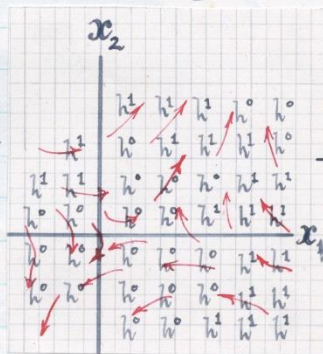 x₂
h¹ h¹ h¹ h⁰ h⁰
h¹ h⁰ h¹ h¹ h¹ h⁰
h¹ h¹ h⁰ h⁰ h⁰ h¹ h¹
h⁰ h⁰ h⁰ h⁰ h¹ h¹ h¹
x₁
h⁰ h⁰ h⁰ h⁰ h⁰ h¹ h¹
h⁰ h⁰ h⁰ h⁰ h⁰ h¹ h¹
h⁰ h⁰ h¹ h¹ h¹